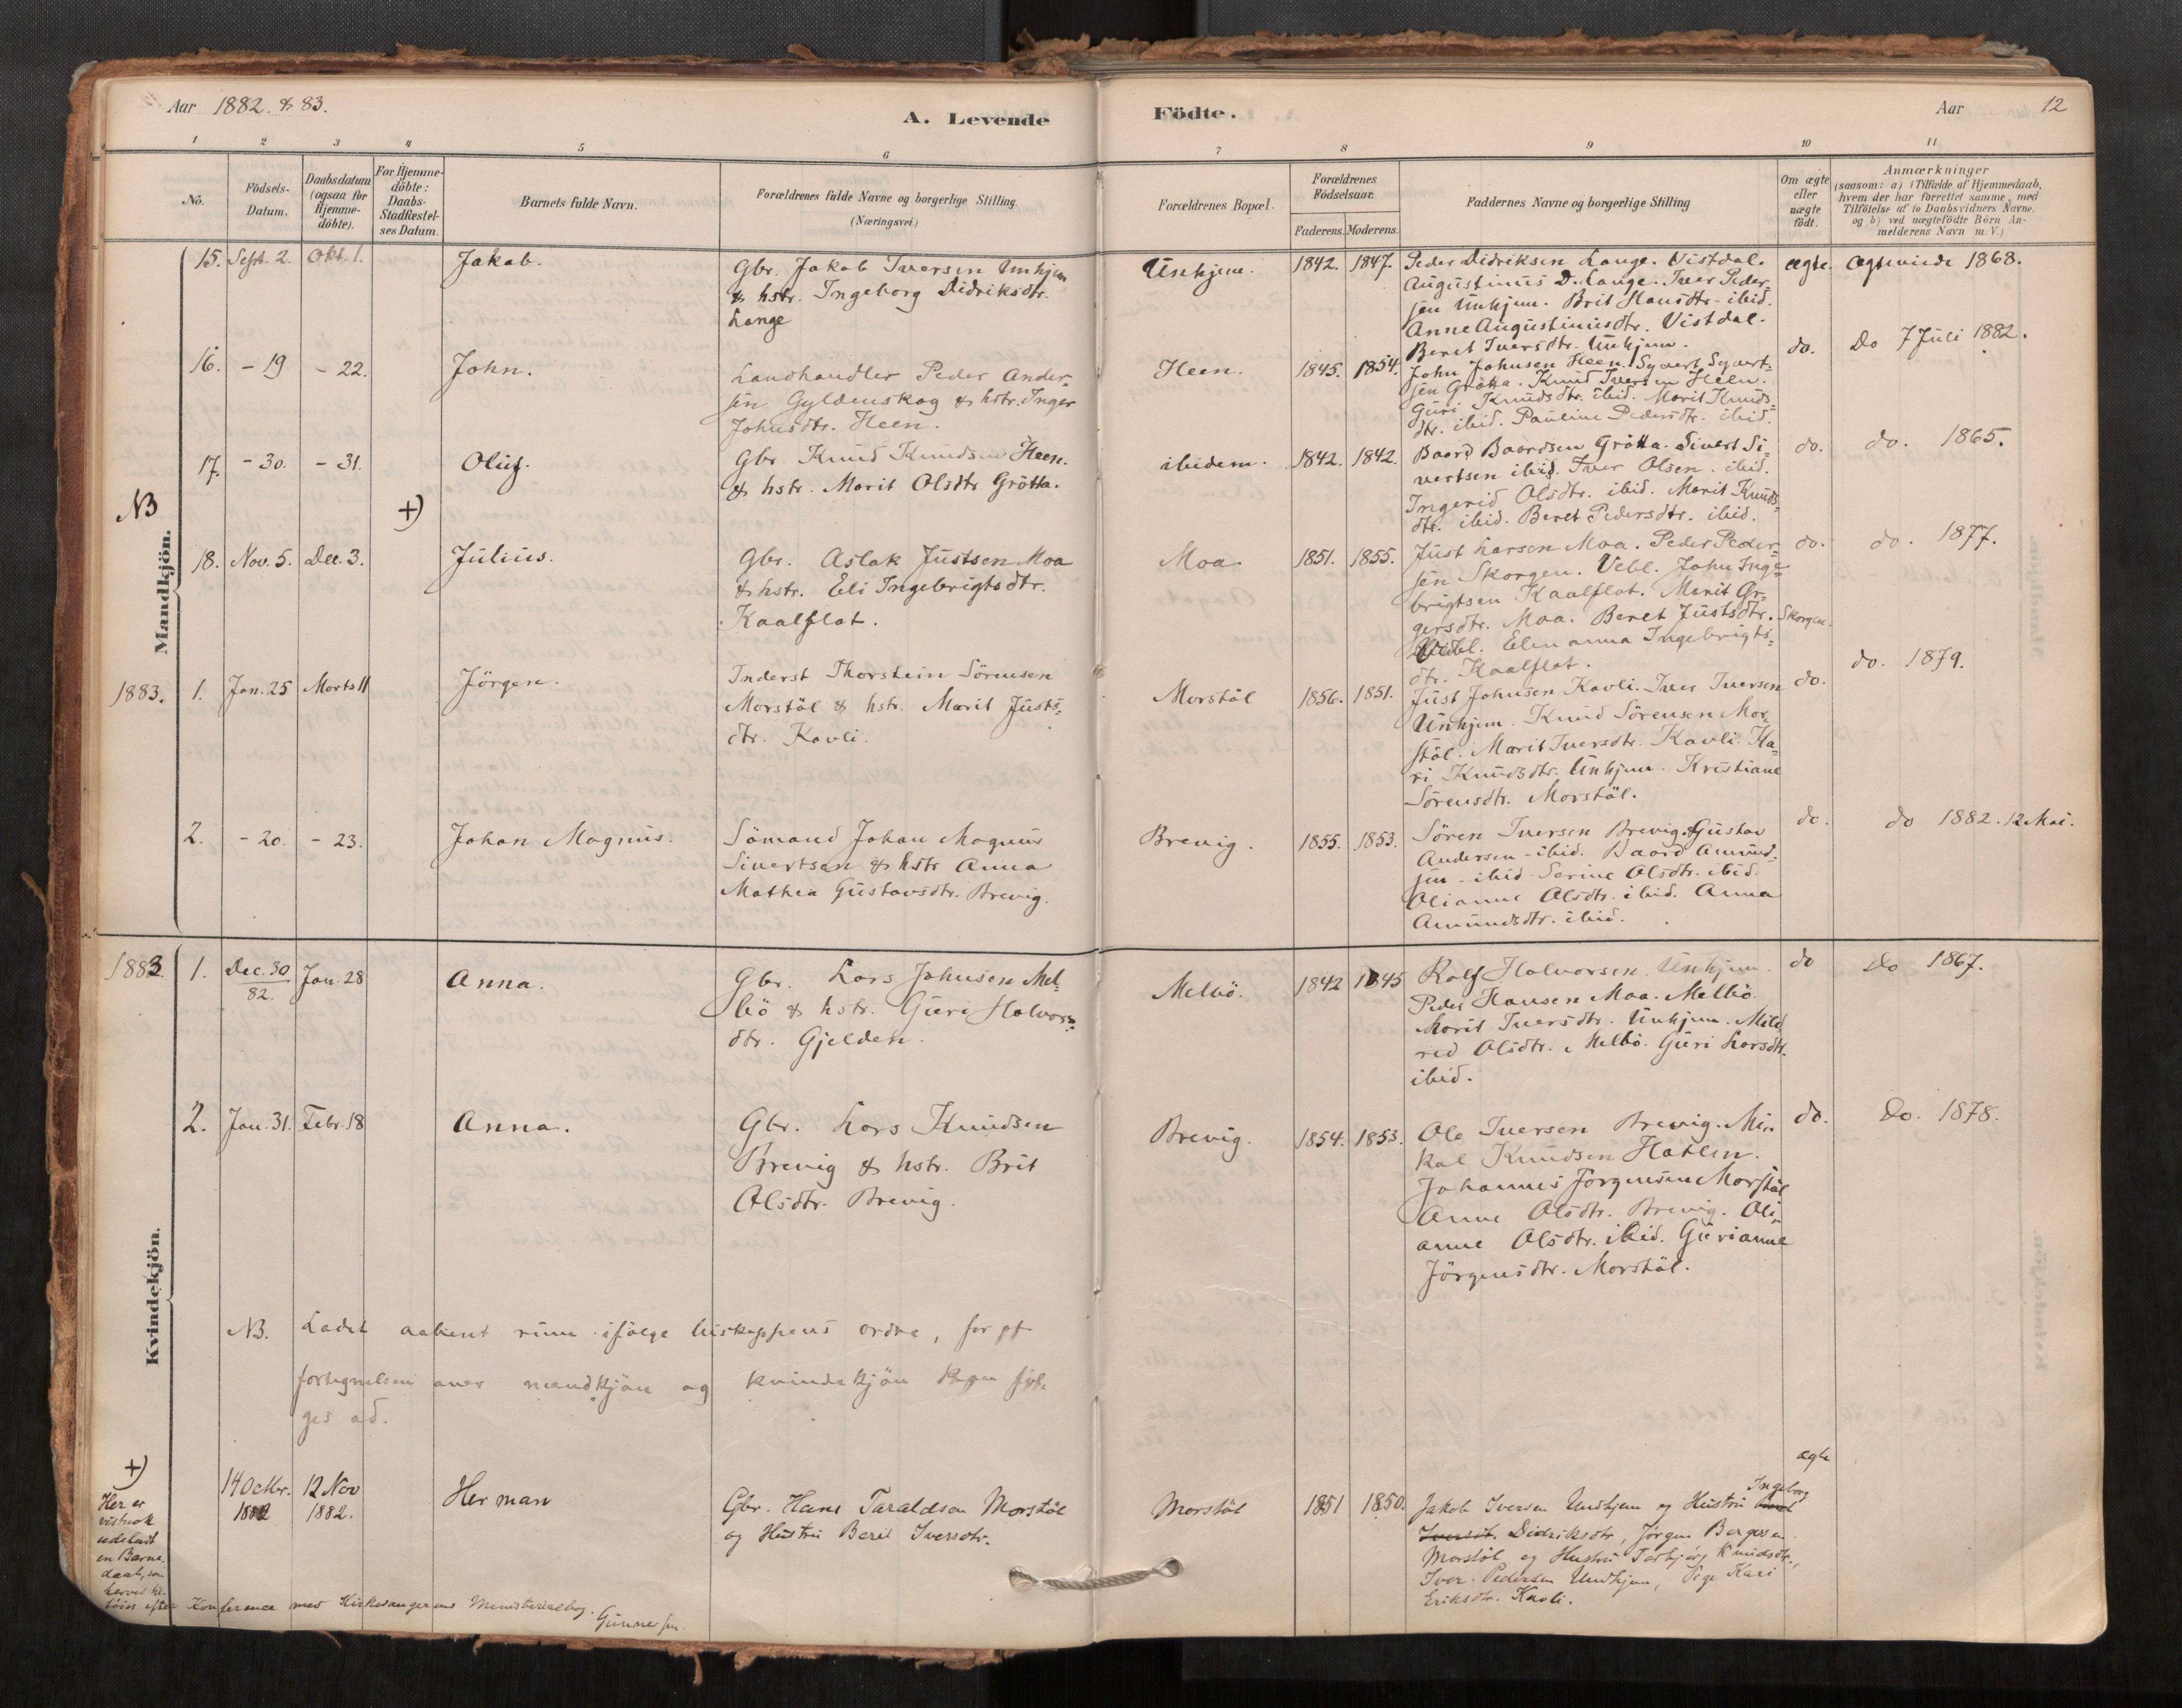 Aar 1882 & 83.
A. Levende
Födte.
Aar
12
1
2
3
4
5
6
7
8
9
10
11
No.
Födsels-
Datum.
Daabsdatum
(ogsaa for
Hjemme-
döbte).
For Hjemme-
döbte:
Daabs-
Stadfæstel-
ses Datum.
Barnets fulde Navn.
Forældrenes fulde Navne og borgerlige Stilling
(Næringsvei.)
Forældrenes Bopæl.
Forældrenes
Födselsaar.
Faderens.
Moderens.
Faddernes Navne og borgerlige Stilling
Om ægte
eller
uægte
födt.
Anmærkninger
(saasom: a) i Tilfælde af Hjemmedaab,
hvem der har forrettet samme, med
Tilföielse af to Daabsvidners Navne.
og b) ved uægtefödte Börn An-
melderens Navn m. V.)
Mandkjön.
NB
+)
15. Sept. 2. Okt. 1.
Jakob.
Gbr. Jakob Iversen Unhjem
& hstr. Ingeborg Didriksdtr.
Lange
Unhjem.
1842. 1847.
Peder Didriksen Lange. Vistdal.
Augustinus D. Lange. Iver Peder-
sen Unhjem. Brit Hansdtr. ibid.
Anne Augustinusdtr. Vistdal.
Beret Iversdtr. Unhjem.
ægte.
Ægteviede 1868.
16. - 19 - 22.
John.
Landhandler Peder Ander-
sen Gyldenskog & hstr. Inger
Johnsdtr. Heen.
Heen.
1845. 1854.
John Johnsen Heen. Syvert Syvert-
sen Grötta. Knud Iversen Heen.
Guri Knudsdtr. ibid. Marit Knuds-
dtr. ibid. Pauline Pedersdtr. ibid.
do.
Do 7 Juli 1882.
17. - 30. - 31.
Oluf.
Gbr. Knud Knudsen Heen.
& hstr. Marit Olsdtr Grötta.
ibidem.
1842. 1842.
Baard Baardsen Grötta. Sivert Si-
vertsen ibid. Iver Olsen. ibid.
Ingerid Olsdtr. ibid. Marit Knuds-
dtr. ibid. Beret Pedersdtr. ibid.
do.
do. 1865.
18. Nov. 5. Dec. 3.
Julius.
Gbr. Aslak Justsen Moa
& hstr. Eli Ingebrigtsdtr.
Kaalflat.
Moa.
1851. 1855.
Just Larsen Moa. Peder Peder-
sen Skorgen. Vebl. John Inge-
brigtsen Kaalflat. Marit Gr-
gersdtr. Moa. Beret Justsdtr. Skorgen.
Vebl. Elen anna Ingebrigts-
dtr. Kaalflat.
do.
do. 1877.
1883. 1. Jan. 25 Marts 11
Jörgen.
Inderst Thorstein Sörensen
Morstöl & hstr. Marit Justs-
dtr. Kavli.
Morstöl
1856. 1851.
Just Johnsen Kavli. Iver Iversen
Unhjem. Knud Sörensen Mor-
stöl. Marit Iversdtr. Kavli. Ka-
ri Knudsdtr. Unhjem. Kristiane
Sörensdtr. Morstöl.
do.
do. 1879.
2. - 20. - 23.
Johan Magnus.
Sömand Johan Magnus
Sivertsen & hstr Anna
Mathea Gustavsdtr. Brevig.
Brevig.
1855. 1853.
Sören Iversen Brevig. Gustav
Andersen - ibid. Baard Amund-
sen - ibid. Serine Olsdtr. ibid.
Olianne Olsdtr. ibid. Anna
Amundsdtr. ibid.
do.
do 1882. 12 Mai.
Kvindekjön.
1883. 1. Dec. 30 Jan. 28
82.
Anna.
Gbr. Lars Johnsen Mel-
bö & hstr. Guri Halvors-
dtr. Gjelden.
Melbö.
1842 1845
Rolf Halvorsen. Unhjem.
Peder Hansen Moa. Melbö.
Marit Iversdtr. Unhjem. Mild
red Olsdtr. Melbö. Guri Larsdtr.
ibid.
do
Do 1867.
2. Jan. 31. Febr. 18
Anna.
Gbr. Lars Knudsen
Brevig & hstr. Brit
Olsdtr. Brevig.
Brevig.
1854. 1853.
Ole Iversen Brevig. Mi-
kal Knudsen Hatlen.
Johannes Jörgensen Morstöl
Anne Olsdtr. Brevig. Oli-
anne Olsdtr. ibid. Gurianne
Jörgensdtr. Morstöl.
do.
Do. 1878.
NB. Ladet aabent rum ifölge biskoppens ordre, for at
fortegnelsen over mandkjön og kvindekjön kan föl-
ges ad.
+)
Her er
vistnok
udeladt
en Barne-
daab, som
herved til-
föies efter Konference med Kirkesangerens Ministerialbog.
14 Octbr. 12 Nov
1882 1882.
Herman
Gbr. Hans Taraldsen Morstöl
og Hustru Berit Iversdtr.
Morstöl
1851 1850.
Ingeborg
Jakob Iversen Undhjem og Hustru
Iversdt. Didriksdtr, Jörgen Bergersen
Morstöl og Hustru Torbjörg Knudsdtr.,
Iver Pedersen Undhjem, Pige Kari
Eriksdtr. Kavli.
ægte